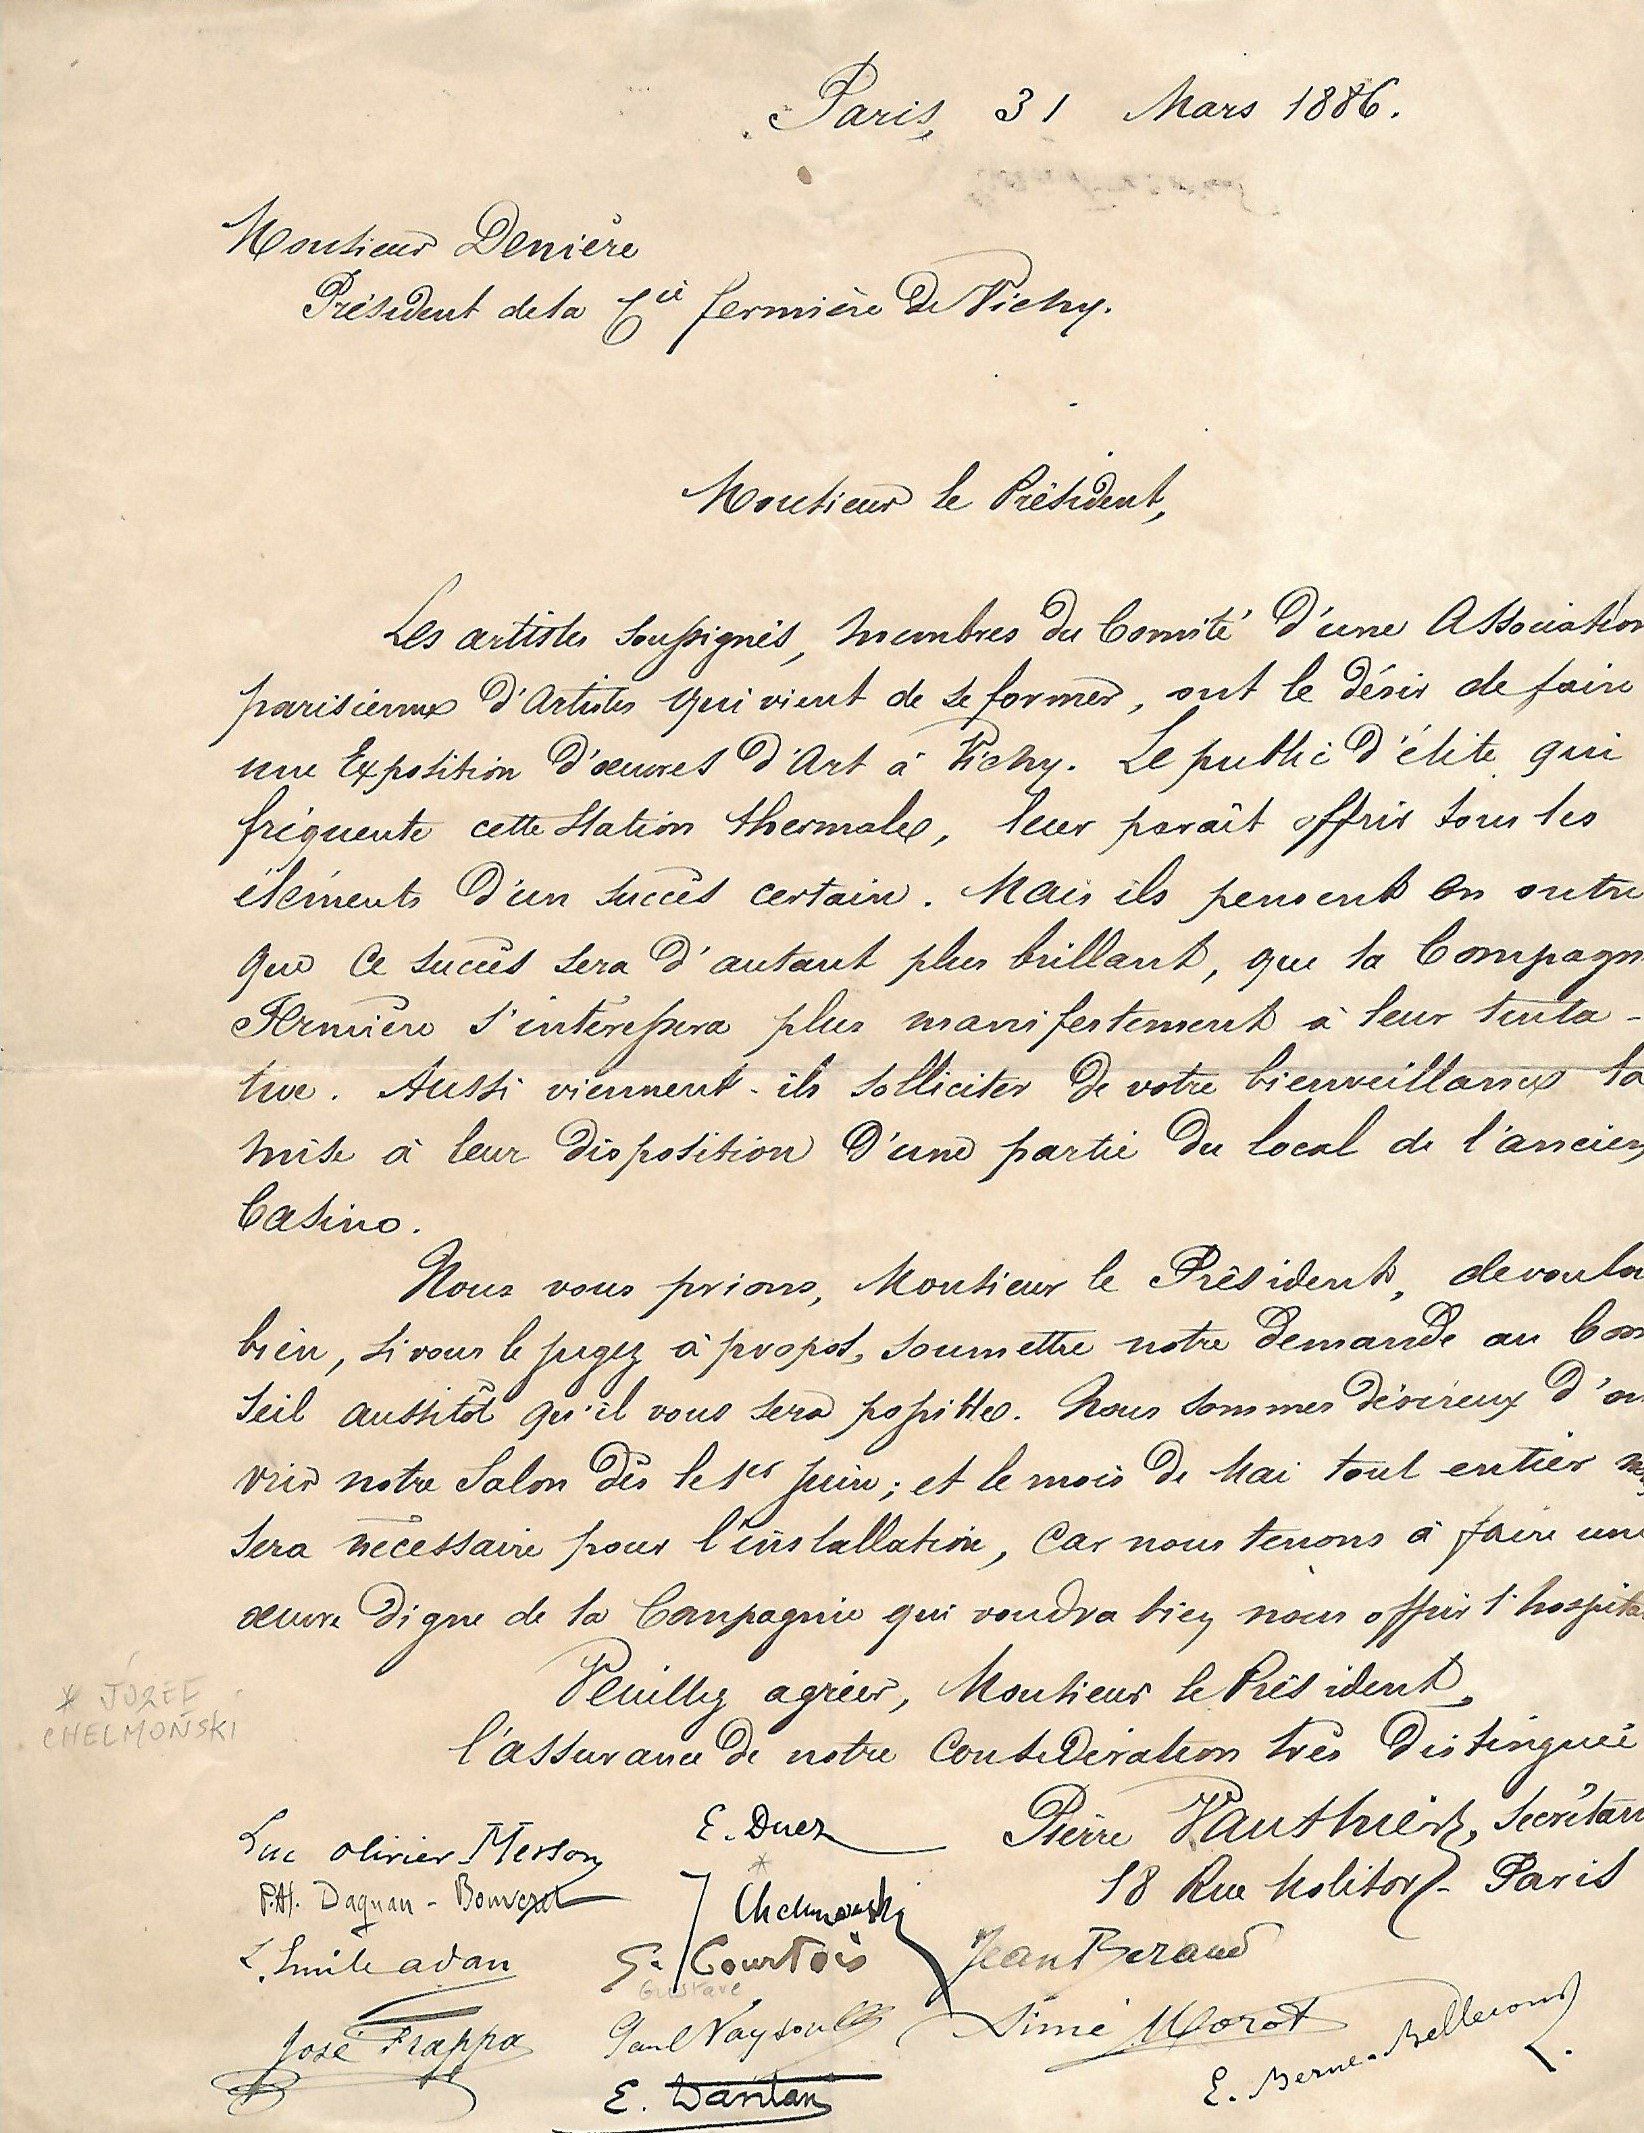 Paris, 31 Mars 1886.
Monsieur Denière
Président de la Cie fermière de Vichy.
Monsieur le Président,
Les artistes soussignés, membres du Comité d'une Association
parisienne d'Artistes qui vient de se former, ont le désir de faire
une Exposition d'œuvres d'Art à Vichy. Le public d'élite qui
fréquente cette Station thermale, leur paraît offrir tous les
éléments d'un succès certain. Mais ils pensent en outre
que ce succès sera d'autant plus brillant, que la Compagn
Fermière s'intéressera plus manifestement à leur tenta-
tive. Aussi viennent-ils solliciter de votre bienveillance la
mise à leur disposition d'une partie du local de l'ancien
Casino.
Nous vous prions, Monsieur le Président, de voulo
bien, si vous le jugez à propos, soumettre notre demande au Con
seil aussitôt qu'il vous sera possible. Nous sommes désireux d'ou
vrir notre Salon dès le 1er Juin; et le mois de Mai tout entier
sera nécessaire pour l'installation, car nous tenons à faire une
œuvre digne de la Compagnie qui voudra bien nous offrir l'hospita
Veuillez agréer, Monsieur le Président,
l'assurance de notre considération très distinguée
* JÓZEF
CHEŁMOŃSKI
Pierre Vauthier, Secrétaire
18 Rue Molitor - Paris
Luc Olivier Merson
E. Duez
P.A.J. Dagnan-Bouveret
*
J Chelmonski
L. Emile Adan
G. Courtois
Gustave
Jean Beraud
José Frappa
Paul Vayson
Aimé Morot
E. Dantan
E. Berne-Bellecour